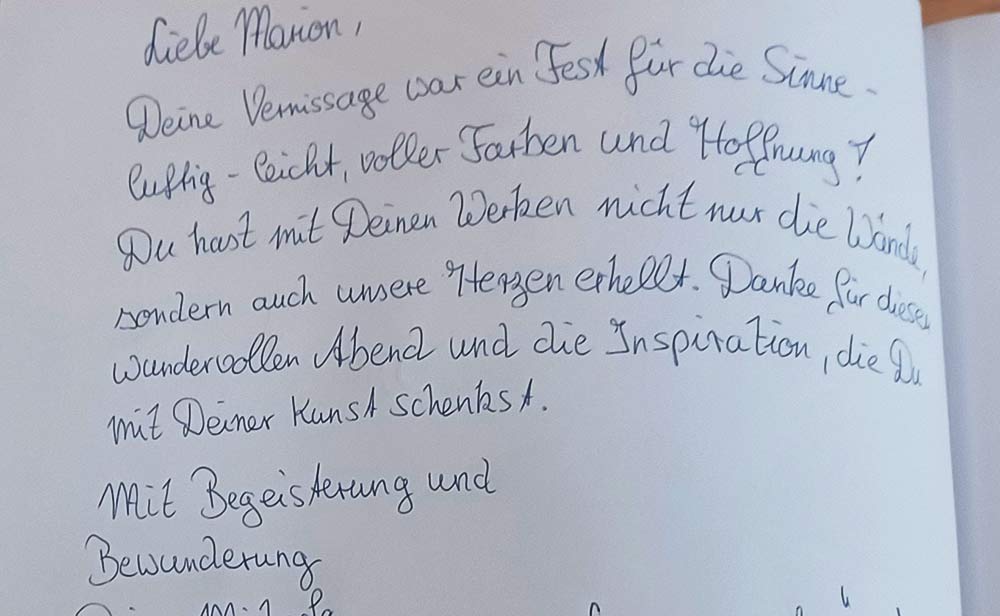 Liebe Marion,
Deine Vernissage war ein Fest für die Sinne -
luftig - leicht, voller Farben und Hoffnung!
Du hast mit Deinen Werken nicht nur die Wände,
sondern auch unsere Herzen erhellt. Danke für diesen
wundervollen Abend und die Inspiration, die Du
mit Deiner Kunst schenkst.
Mit Begeisterung und
Bewunderung